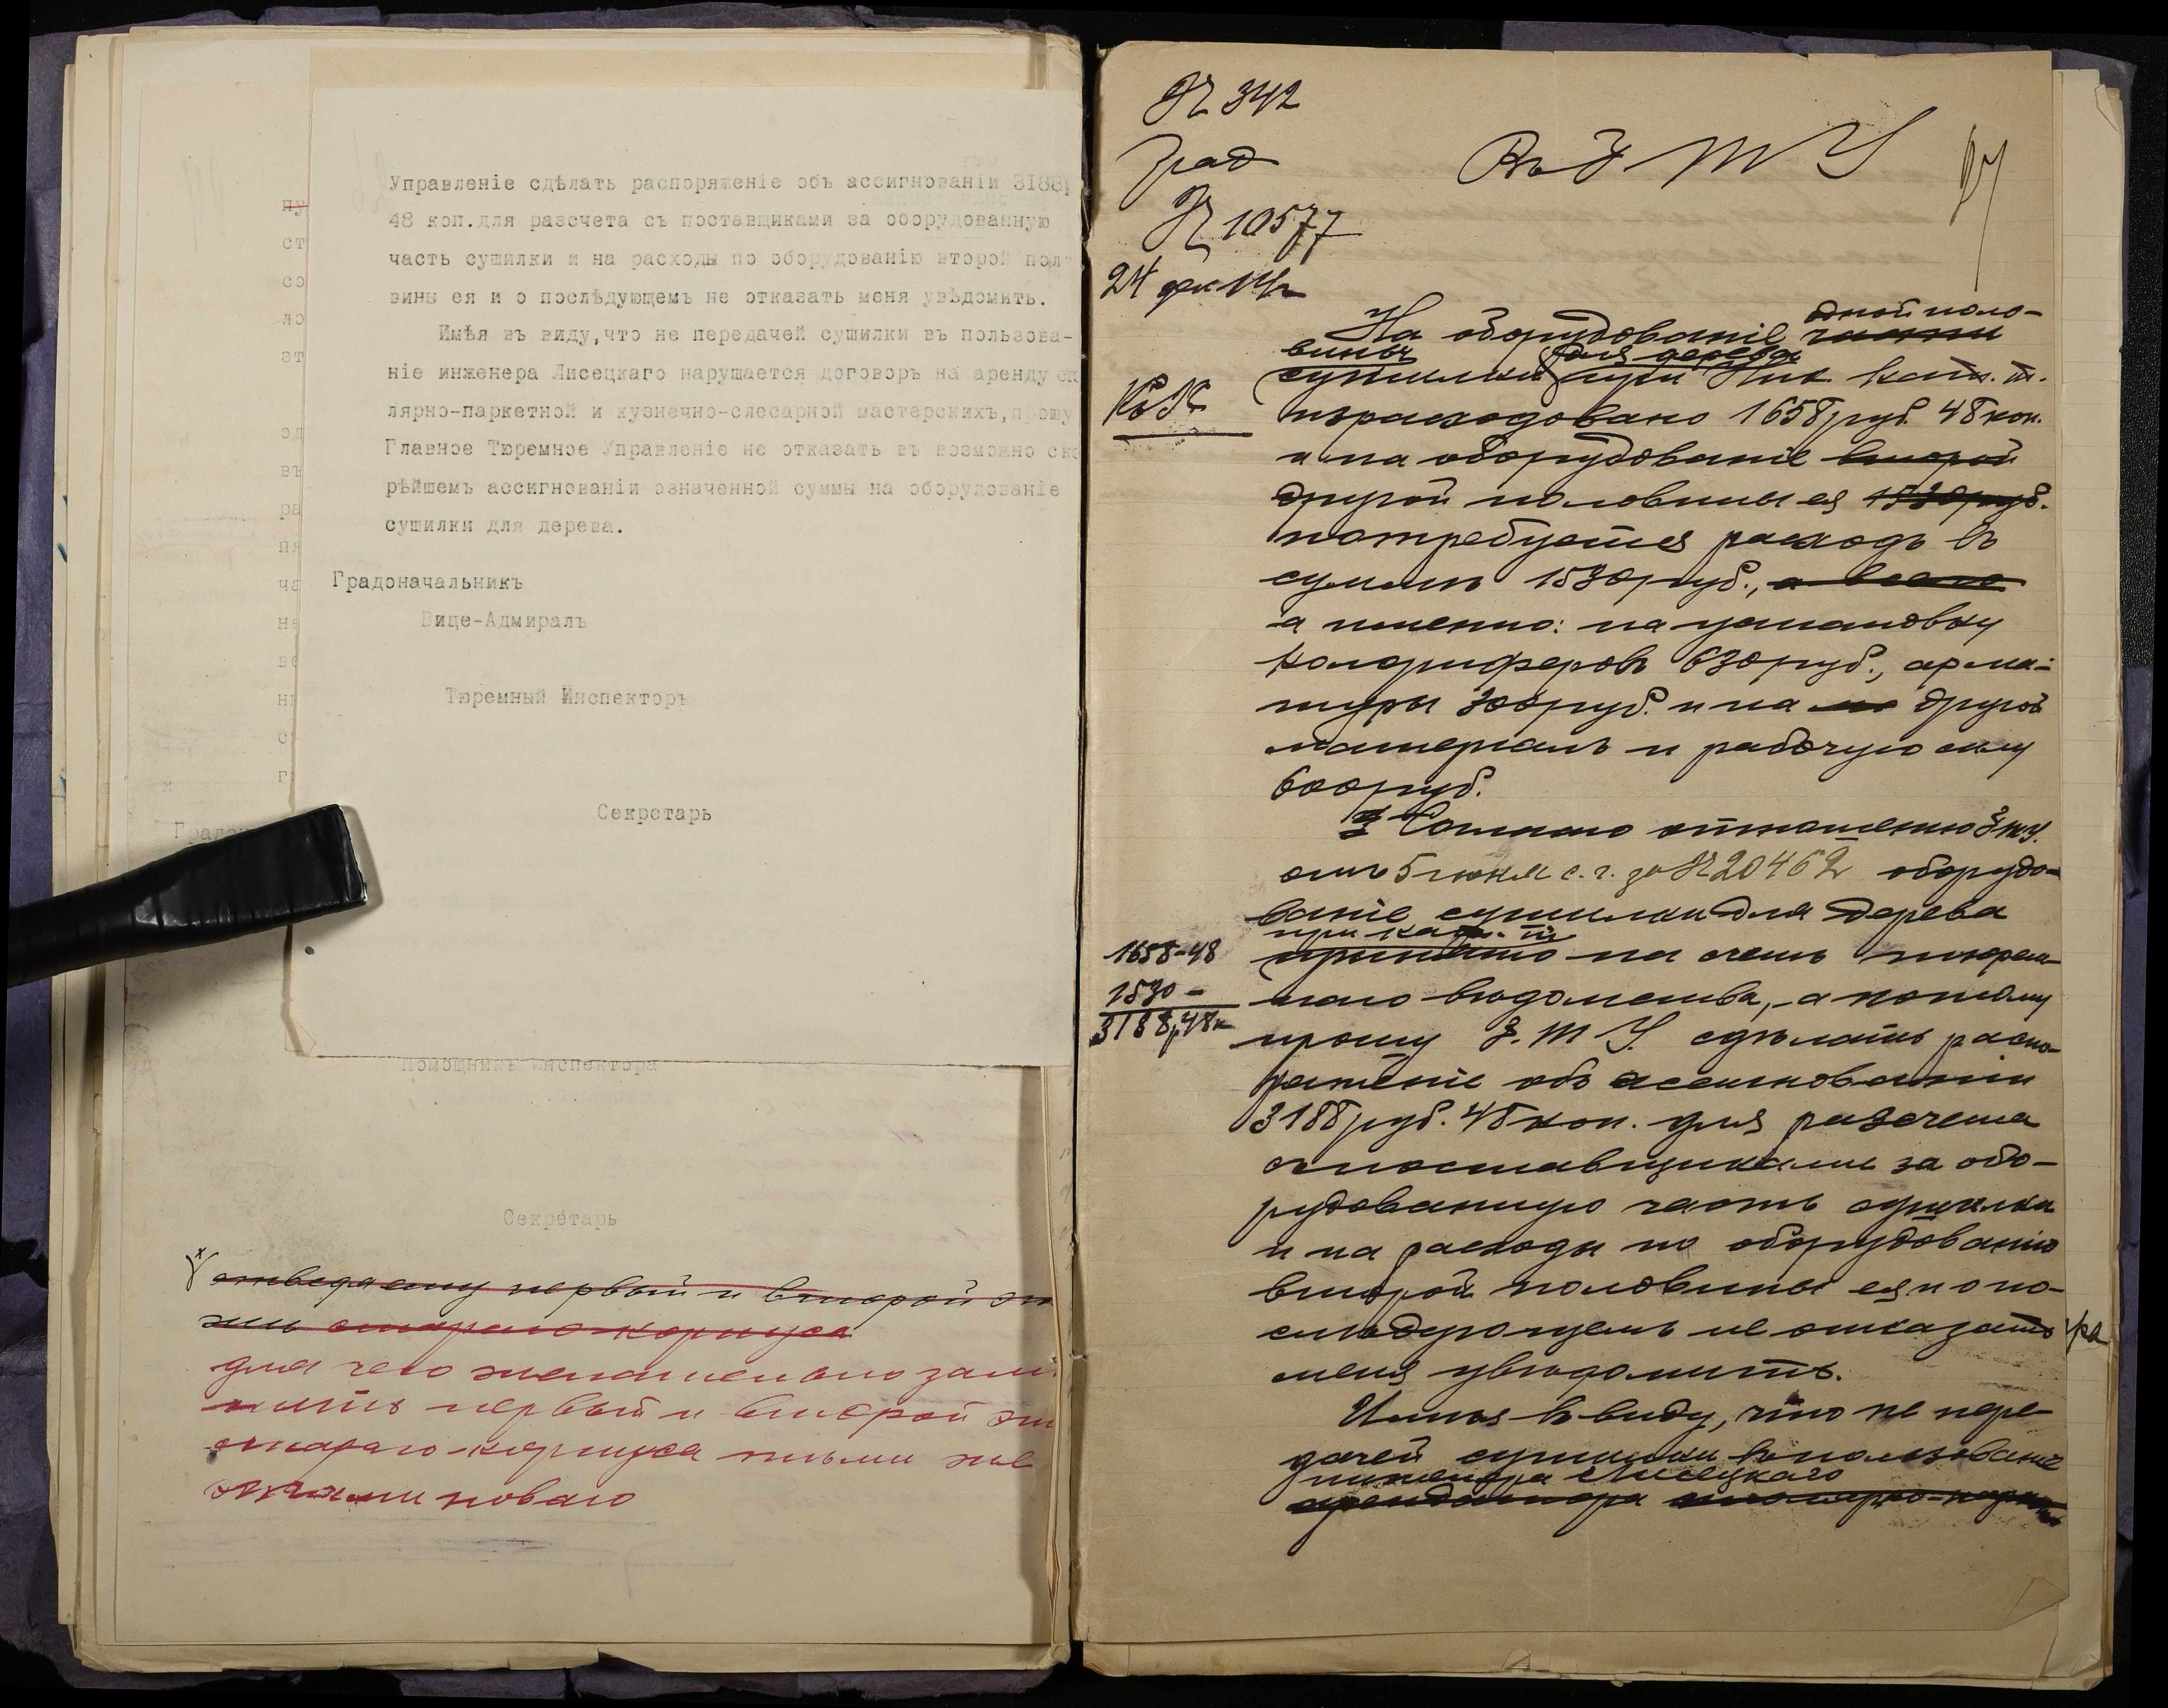 Управленіе сдѣлать распоряженіе объ ассигнованіи 3188р
48 коп.для разсчета съ поставщиками за оборудованную
часть сушилки и на расходы по оборудованію второй поло-
вины ея и о послѣдующемъ не отказать меня увѣдомить.
Имѣя въ виду,что не передачей сушилки въ пользова-
ніе инженера Лисецкаго нарушается договоръ на аренду сто
лярно-паркетной и кузнечно-слесарной мастерскихъ,прошу
Главное Тюремное Управленіе не отказать въ возможно ско
рѣйшемъ ассигнованіи означенной суммы на оборудованіе
сушилки для дерева.
Градоначальникъ
Вице-Адмиралъ
Тюремный Инспекторъ
Секретарь
ну
ст
со
ло
эт
од
въ
ра
пя
ча
не
ве
нь
с
г
Градон
Помощникъ Инспектора
Секретарь
первый и второй эт
жи стараго корпуса
для чего
нить первый и второй эт
стараго корпуса тѣми же
этажами новаго
№ 342
Град
№ 10577
24 дек 14г
Въ Г Т У
одной поло-
На оборудованіе части
вины для дерева
сушилки при Ник кат. т.
израсходовано 1658 руб. 48 коп.
и на оборудованіе второй
другой половины ея 1530 руб.
потребуется расходъ въ
суммѣ 1530 руб., а всего
а именно: на установку
калориферовъ 630 руб., арма-
туры 300 руб. и на др другой
матеріалъ и рабочую силу
600 руб.
Согласно отношенію Г.Т.У.
отъ 5 іюня с.г. за № 20462 оборудо-
ваніе сушилки для дерева
при кат. т.
принято на счетъ тюрем-
1658-48
1530 -
3188р48к
наго вѣдомства, а потому
прошу Г. Т. У. сдѣлать распо-
ряженіе объ ассигнованіи
3188 руб. 48 коп. для разсчета
съ поставщиками за обо-
рудованную часть сушилки
и на расходы по оборудованію
второй половины ея и о по-
слѣдующемъ не отказать
меня увѣдомить.
Имѣя въ виду, что не пере-
дачей сушилки въ пользованіе
инженера Лисецкаго
арендатора столярно-парке